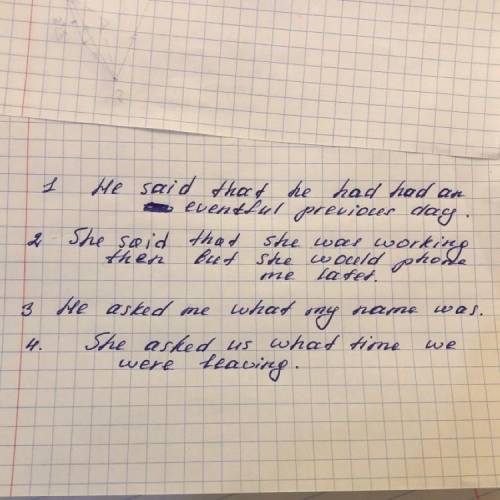 1 He said that he had had an
eventful previous day.
2 She said that she was working
then but she would phone
me later.
3 He asked me what my name was.
4. She asked us what time we
were leaving.